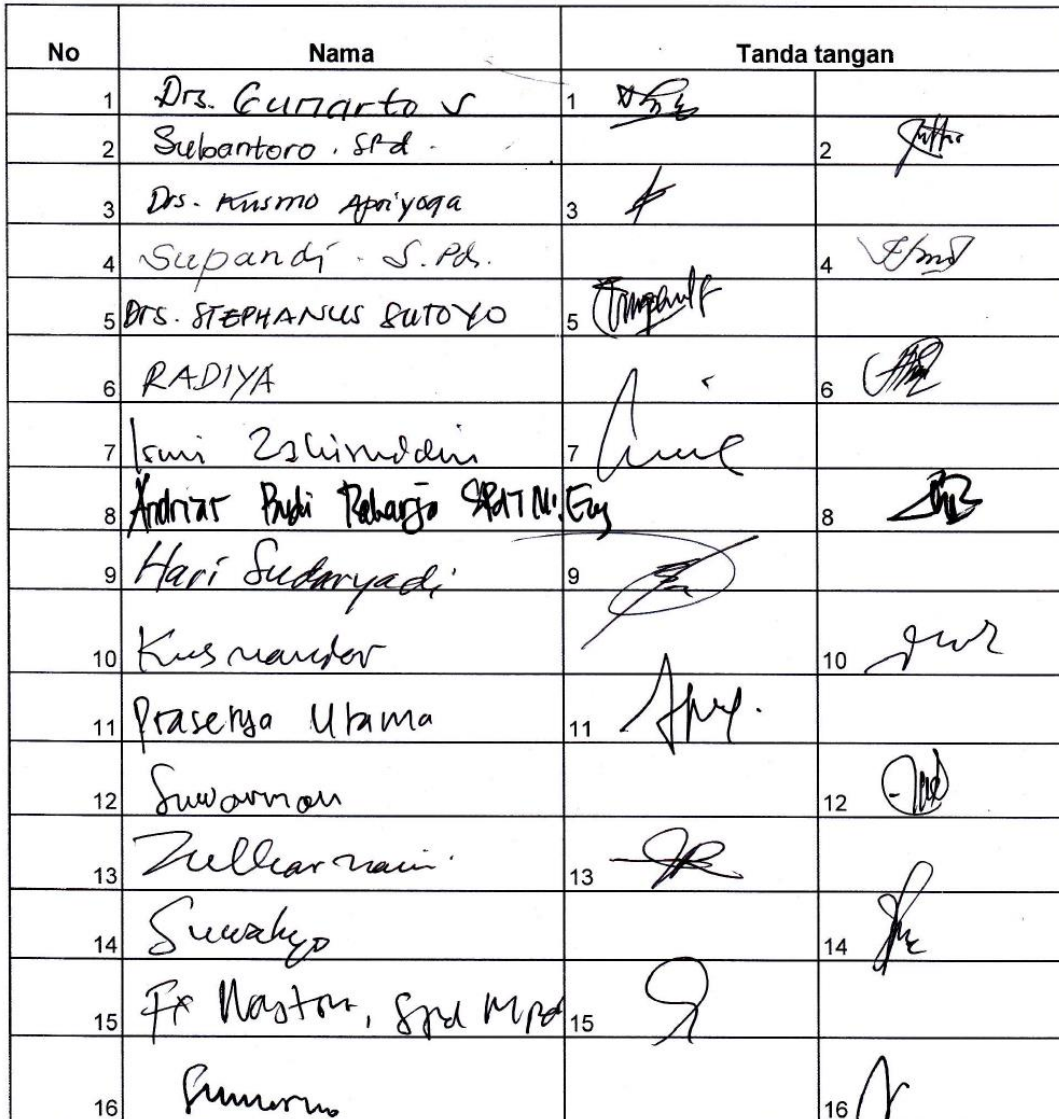 No Nama Tanda tangan
1 Drs. Gunarto S 1
2 Subantoro. SPd. 2
3 Drs. Kusmo Apriyoga 3
4 Supandi. S.Pd. 4
5 Drs. STEPHANUS SUTOYO 5
6 RADIYA 6
7 Ismi 7
8 Andriat Budi Raharjo SPdT M.Eng 8
9 Hari Sudaryadi 9
10 Kusnandar 10
11 Prasetya Utama 11
12 Suwarman 12
13 Zulkarnain 13
14 Suwahyo 14
15 Fx Spd Mpd 15
16 16